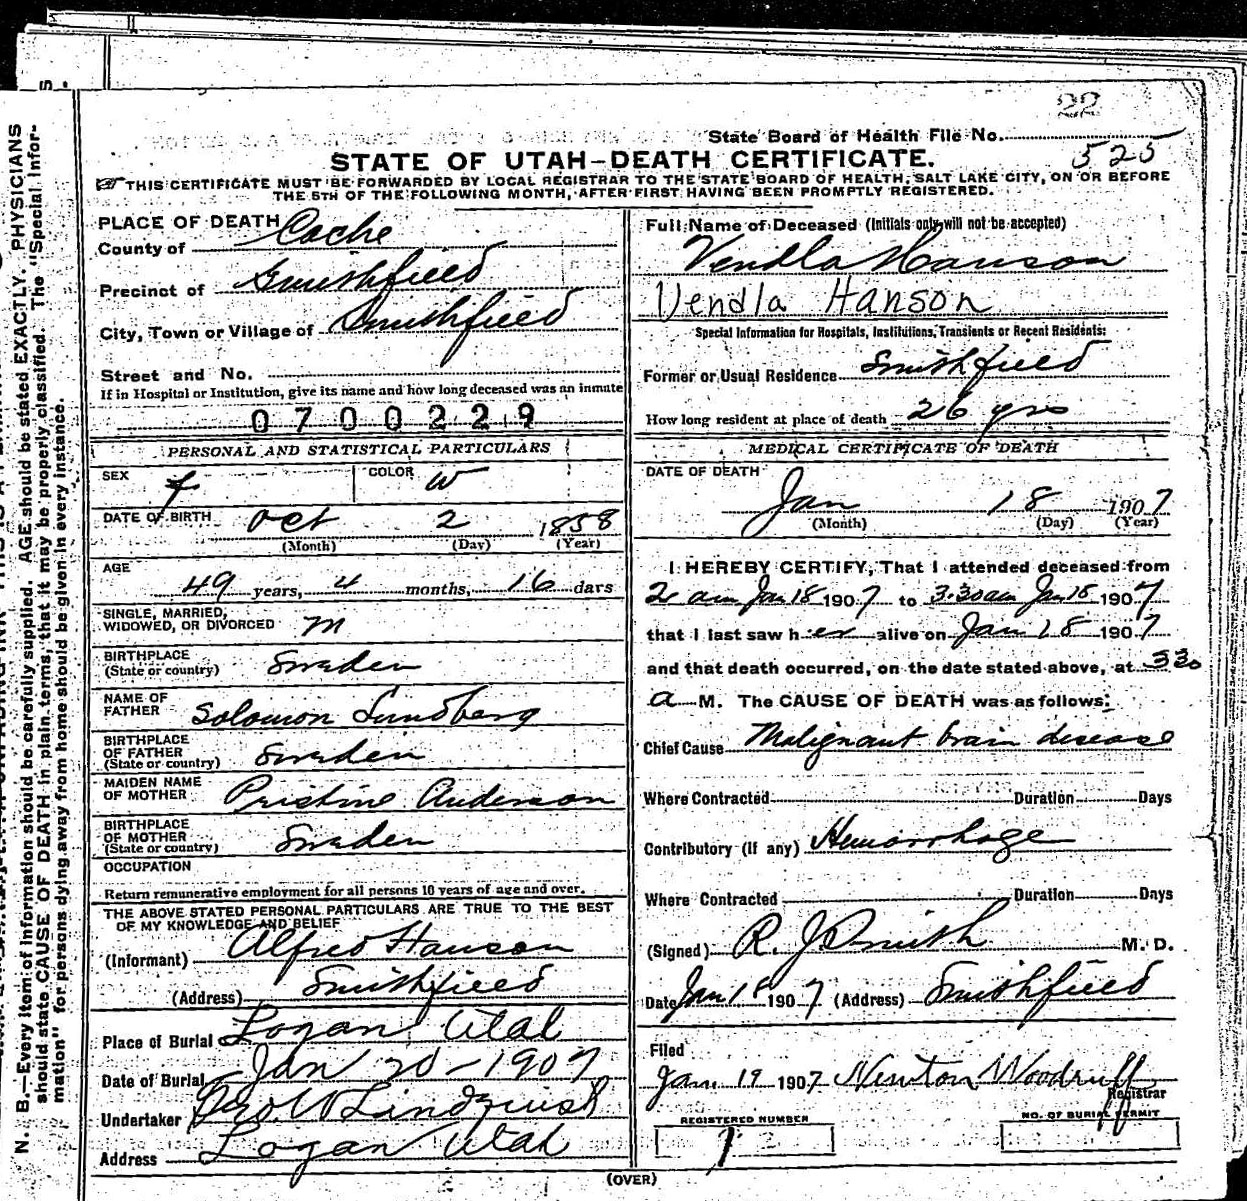 22
State Board of Health File No.
525
STATE OF UTAH—DEATH CERTIFICATE.
THIS CERTIFICATE MUST BE FORWARDED BY LOCAL REGISTRAR TO THE STATE BOARD OF HEALTH, SALT LAKE CITY, ON OR BEFORE
THE 5TH OF THE FOLLOWING MONTH, AFTER FIRST HAVING BEEN PROMPTLY REGISTERED.
PLACE OF DEATH
County of Cache
Precinct of Smithfield
City, Town or Village of Smithfield
Street and No.
If in Hospital or Institution, give its name and how long deceased was an inmate
0700229
PERSONAL AND STATISTICAL PARTICULARS
SEX f COLOR w
DATE OF BIRTH Oct 2 1858
(Month) (Day) (Year)
AGE
49 years, 4 months, 16 days
SINGLE, MARRIED,
WIDOWED, OR DIVORCED m
BIRTHPLACE
(State or country) Sweden
NAME OF
FATHER Solomon Lundberg
BIRTHPLACE
OF FATHER
(State or country) Sweden
MAIDEN NAME
OF MOTHER Pristine Anderson
BIRTHPLACE
OF MOTHER
(State or country) Sweden
OCCUPATION
Return remunerative employment for all persons 10 years of age and over.
THE ABOVE STATED PERSONAL PARTICULARS ARE TRUE TO THE BEST
OF MY KNOWLEDGE AND BELIEF
(Informant) Alfred Hanson
(Address) Smithfield
Place of Burial Logan Utah
Date of Burial Jan 20-1907
Undertaker Geo W Lindquist
Address Logan Utah
Full Name of Deceased (Initials only will not be accepted)
Vendla Hanson
Vendla Hanson
Special Information for Hospitals, Institutions, Transients or Recent Residents:
Former or Usual Residence Smithfield
How long resident at place of death 26 yrs
MEDICAL CERTIFICATE OF DEATH
DATE OF DEATH
Jan 18 1907
(Month) (Day) (Year)
I HEREBY CERTIFY, That I attended deceased from
2 am Jan 18 1907 to 3.30 am Jan 18 1907
that I last saw her alive on Jan 18 1907
and that death occurred, on the date stated above, at 3 30
a M. The CAUSE OF DEATH was as follows:
Chief Cause Malignant brain disease
Where Contracted Duration Days
Contributory (If any) Hemorrhage
Where Contracted Duration Days
(Signed) R. J Smith M. D.
Date Jan 18 1907 (Address) Smithfield
Filed
Jan 19 1907 Newton Woodruff
Registrar
REGISTERED NUMBER NO. OF BURIAL PERMIT
(OVER)
N. B.—Every item of information should be carefully supplied. AGE should be stated EXACTLY. PHYSICIANS
should state CAUSE OF DEATH in plain terms, that it may be properly classified. The "Special Infor-
mation" for persons dying away from home should be given in every instance.